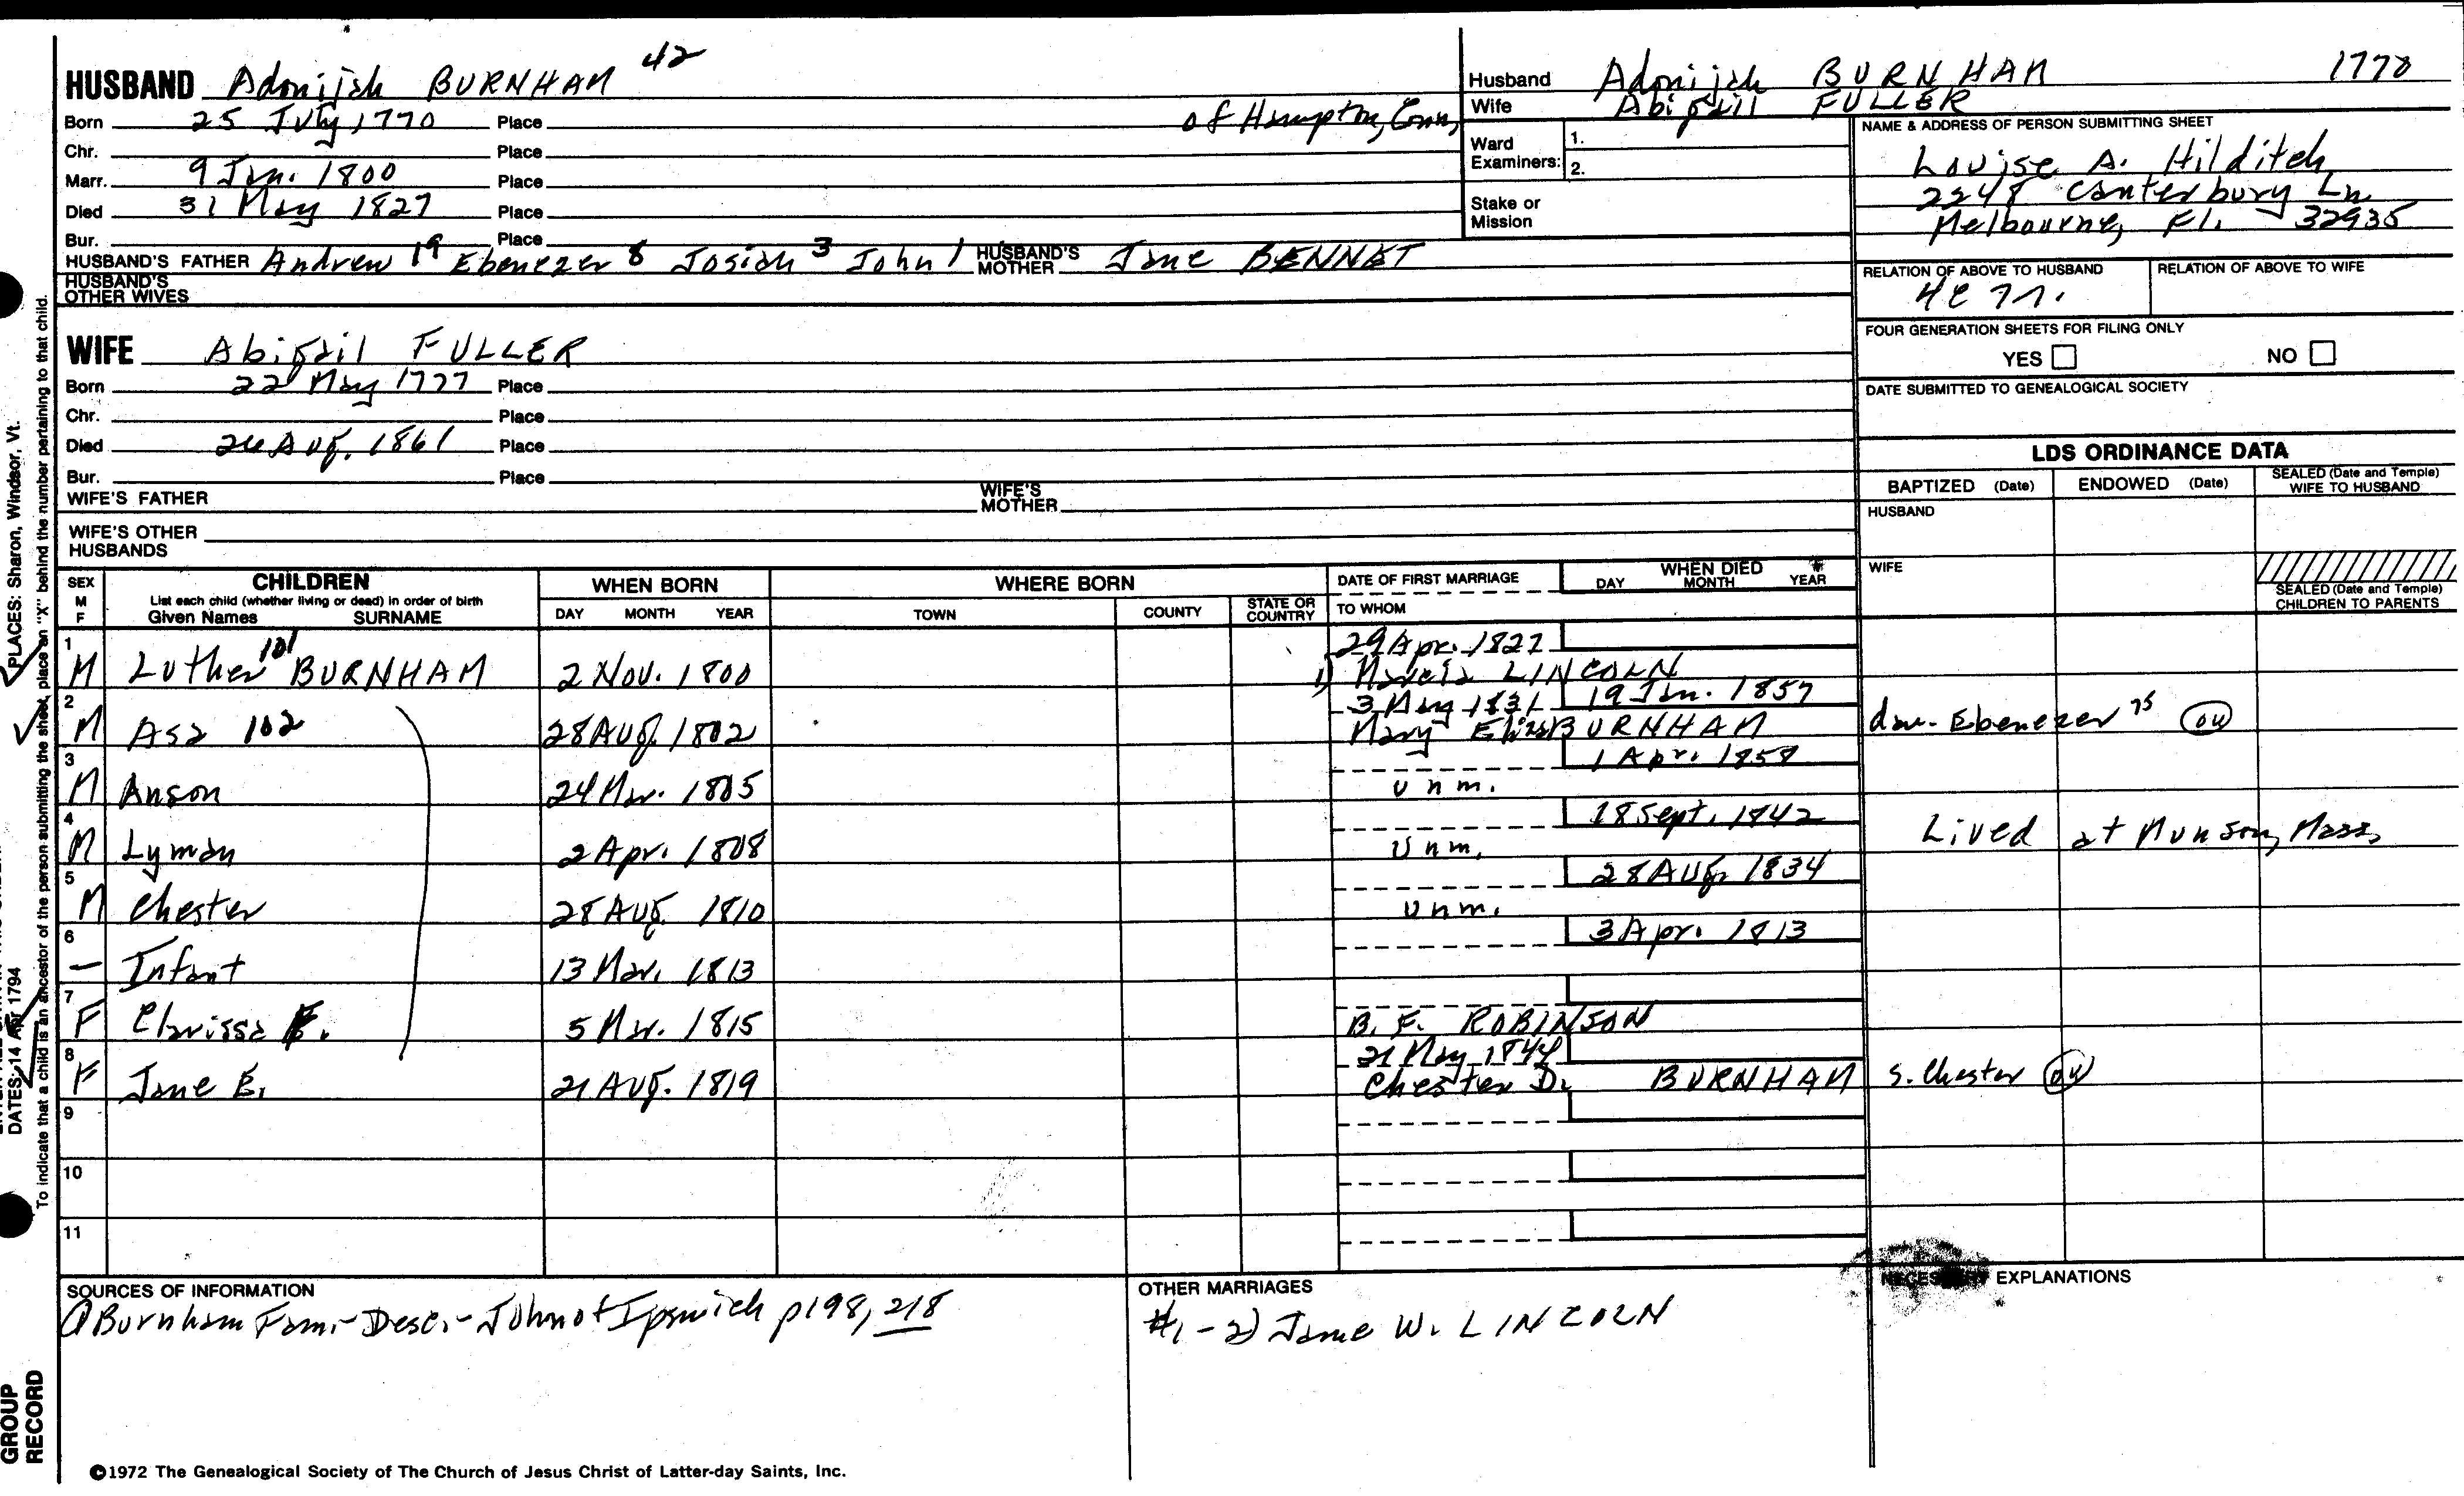 HUSBAND Adonijah BURNHAM 42
Born 25 July 1770 Place of Hampton, Conn,
Chr. Place
Marr. 9 Jan. 1800 Place
Died 31 May 1827 Place
Bur. Place
HUSBAND'S FATHER Andrew 19 Ebenezer 8 Josiah 3 John 1 HUSBAND'S MOTHER Jane BENNET
HUSBAND'S OTHER WIVES
Husband Adonijah BURNHAM 1770
Wife Abigail FULLER
Ward Examiners: 1.
2.
Stake or Mission
NAME & ADDRESS OF PERSON SUBMITTING SHEET
Louise A. Hilditch
2248 Canterbury Ln
Melbourne, Fl. 32935
RELATION OF ABOVE TO HUSBAND RELATION OF ABOVE TO WIFE
FOUR GENERATION SHEETS FOR FILING ONLY
YES NO
DATE SUBMITTED TO GENEALOGICAL SOCIETY
WIFE Abigail FULLER
Born 22 May 1777 Place
Chr. Place
Died Aug. 1861 Place
Bur. Place
WIFE'S FATHER WIFE'S MOTHER
WIFE'S OTHER HUSBANDS
LDS ORDINANCE DATA
BAPTIZED (Date) ENDOWED (Date) SEALED (Date and Temple) WIFE TO HUSBAND
HUSBAND
WIFE
SEALED (Date and Temple) CHILDREN TO PARENTS
SEX M F CHILDREN List each child (whether living or dead) in order of birth Given Names SURNAME
WHEN BORN DAY MONTH YEAR
WHERE BORN TOWN COUNTY STATE OR COUNTRY
DATE OF FIRST MARRIAGE TO WHOM
WHEN DIED DAY MONTH YEAR
29 Apr. 1827
1 M Luther 101 BURNHAM 2 Nov. 1800 1) Marcia LINCOLN
3 May 1831 19 Jan. 1857
2 M Asa 102 28 Aug. 1802 Mary Eliza BURNHAM dau. Ebenezer 75 ou
1 Apr. 1858
3 M Anson 24 Mar. 1805 unm.
18 Sept. 1842
4 M Lyman 2 Apr. 1808 Unm. Lived at Munson, Mass,
28 Aug. 1834
5 M Chester 28 Aug. 1810 Unm.
3 Apr. 1813
6 – Infant 13 Mar. 1813
7 F Clarissa F. 5 Mar. 1815 B. F. ROBINSON
21 May 1844
8 F Jane E. 21 Aug. 1819 Chester D. BURNHAM s. Chester ou
9
10
11
SOURCES OF INFORMATION
Burnham Fam.- Desc.- John of Ipswich p198, 218
OTHER MARRIAGES
#1 - 2) Jane W. LINCOLN
EXPLANATIONS
PLACES: Sharon, Windsor, Vt.
DATES: 14 Apr 1794
To indicate that a child is an ancestor of the person submitting the sheet, place an "X" behind the number pertaining to that child.
GROUP
RECORD
©1972 The Genealogical Society of The Church of Jesus Christ of Latter-day Saints, Inc.